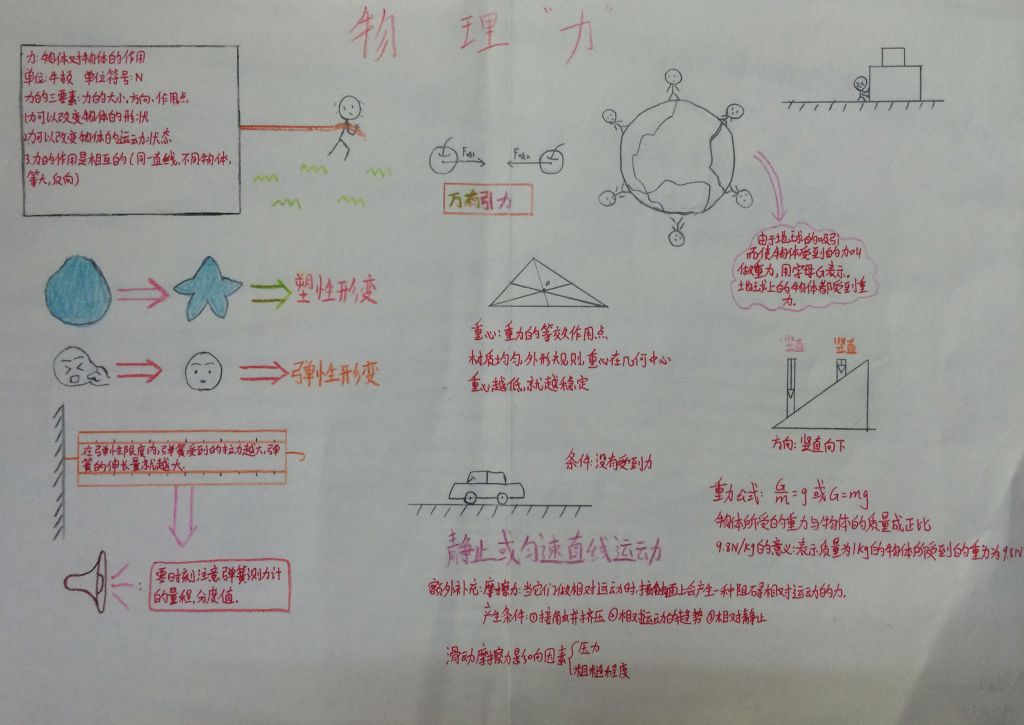 物理"力"
力:物体对物体的作用
单位:牛顿 单位符号:N
力的三要素:力的大小、方向、作用点
1.力可以改变物体的形状
2.力可以改变物体的运动状态
3.力的作用是相互的(同一直线,不同物体,
等大,反向)
F吸1
F吸2
万有引力
由于地球的吸引
而使物体受到的力叫
做重力,用字母G表示.
地球上的物体都受到重
力.
塑性形变
弹性形变
重心:重力的等效作用点
材质均匀,外形规则,重心在几何中心
重心越低,就越稳定
竖直
竖直
方向:竖直向下
在弹性限度内,弹簧受到的拉力越大,弹
簧的伸长量就越大.
要时刻注意弹簧测力计
的量程,分度值.
条件:没有受到力
静止或匀速直线运动
重力公式:G/m=g或G=mg
物体所受的重力与物体的质量成正比
9.8N/kg的意义:表示质量为1kg的物体所受到的重力为9.8N
额外补充:摩擦力:当它们做相对运动时,接触面上会产生一种阻碍相对运动的力.
产生条件:①接触并挤压 ②相对运动的趋势 ③相对静止
滑动摩擦力影响因素{压力
粗糙程度